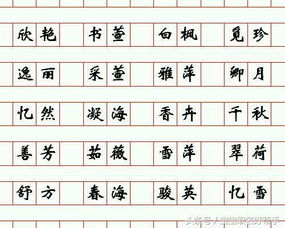 欣艳 书萱 白枫 觅珍
逸丽 采萱 雅萍 卿月
忆然 凝海 香卉 千秋
善芳 茹薇 雪萍 翠荷
舒方 春海 骏英 忆雪